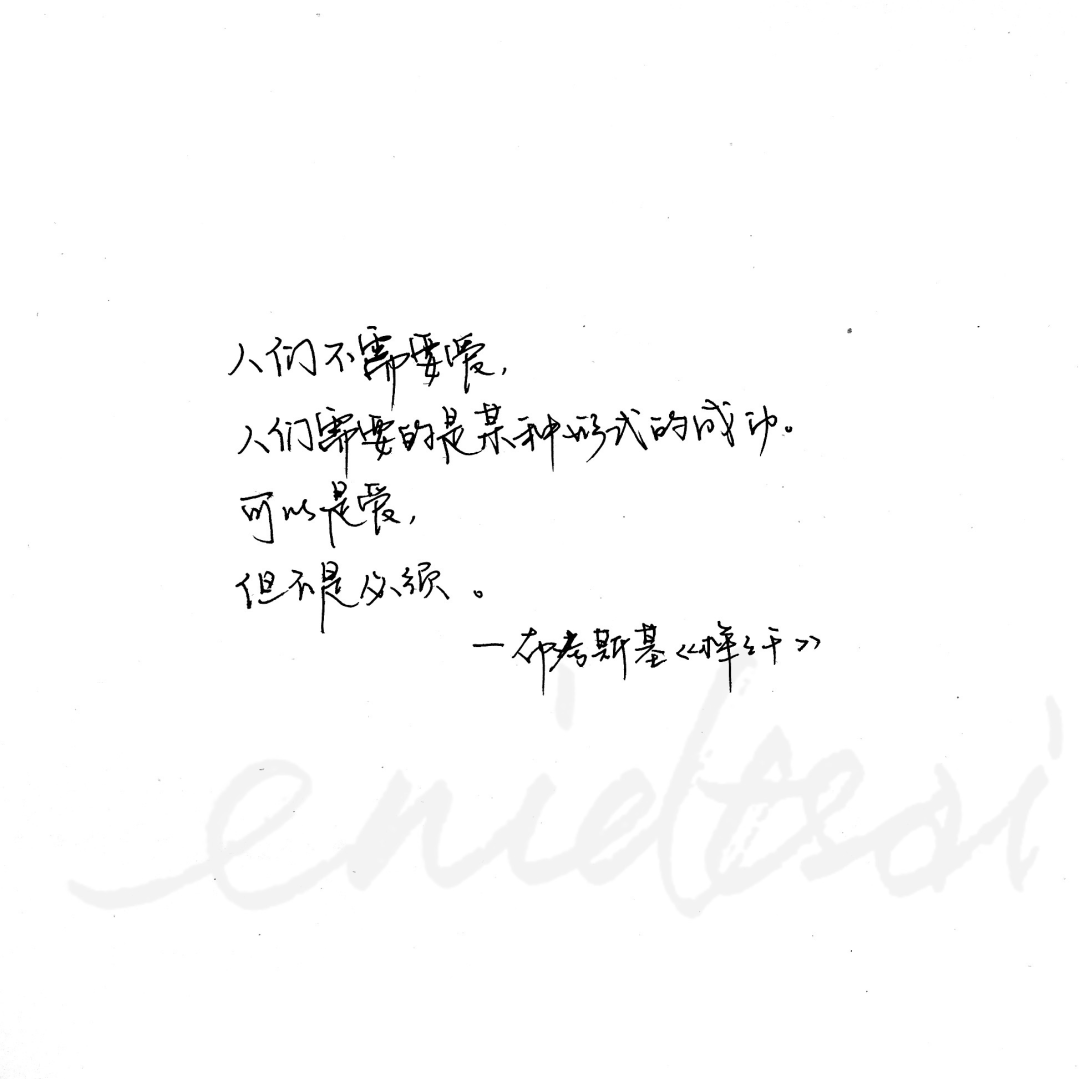 人们不需要爱,
人们需要的是某种形式的成功。
可以是爱,
但不是必须。
—布考斯基《样样干》
enidtsoi